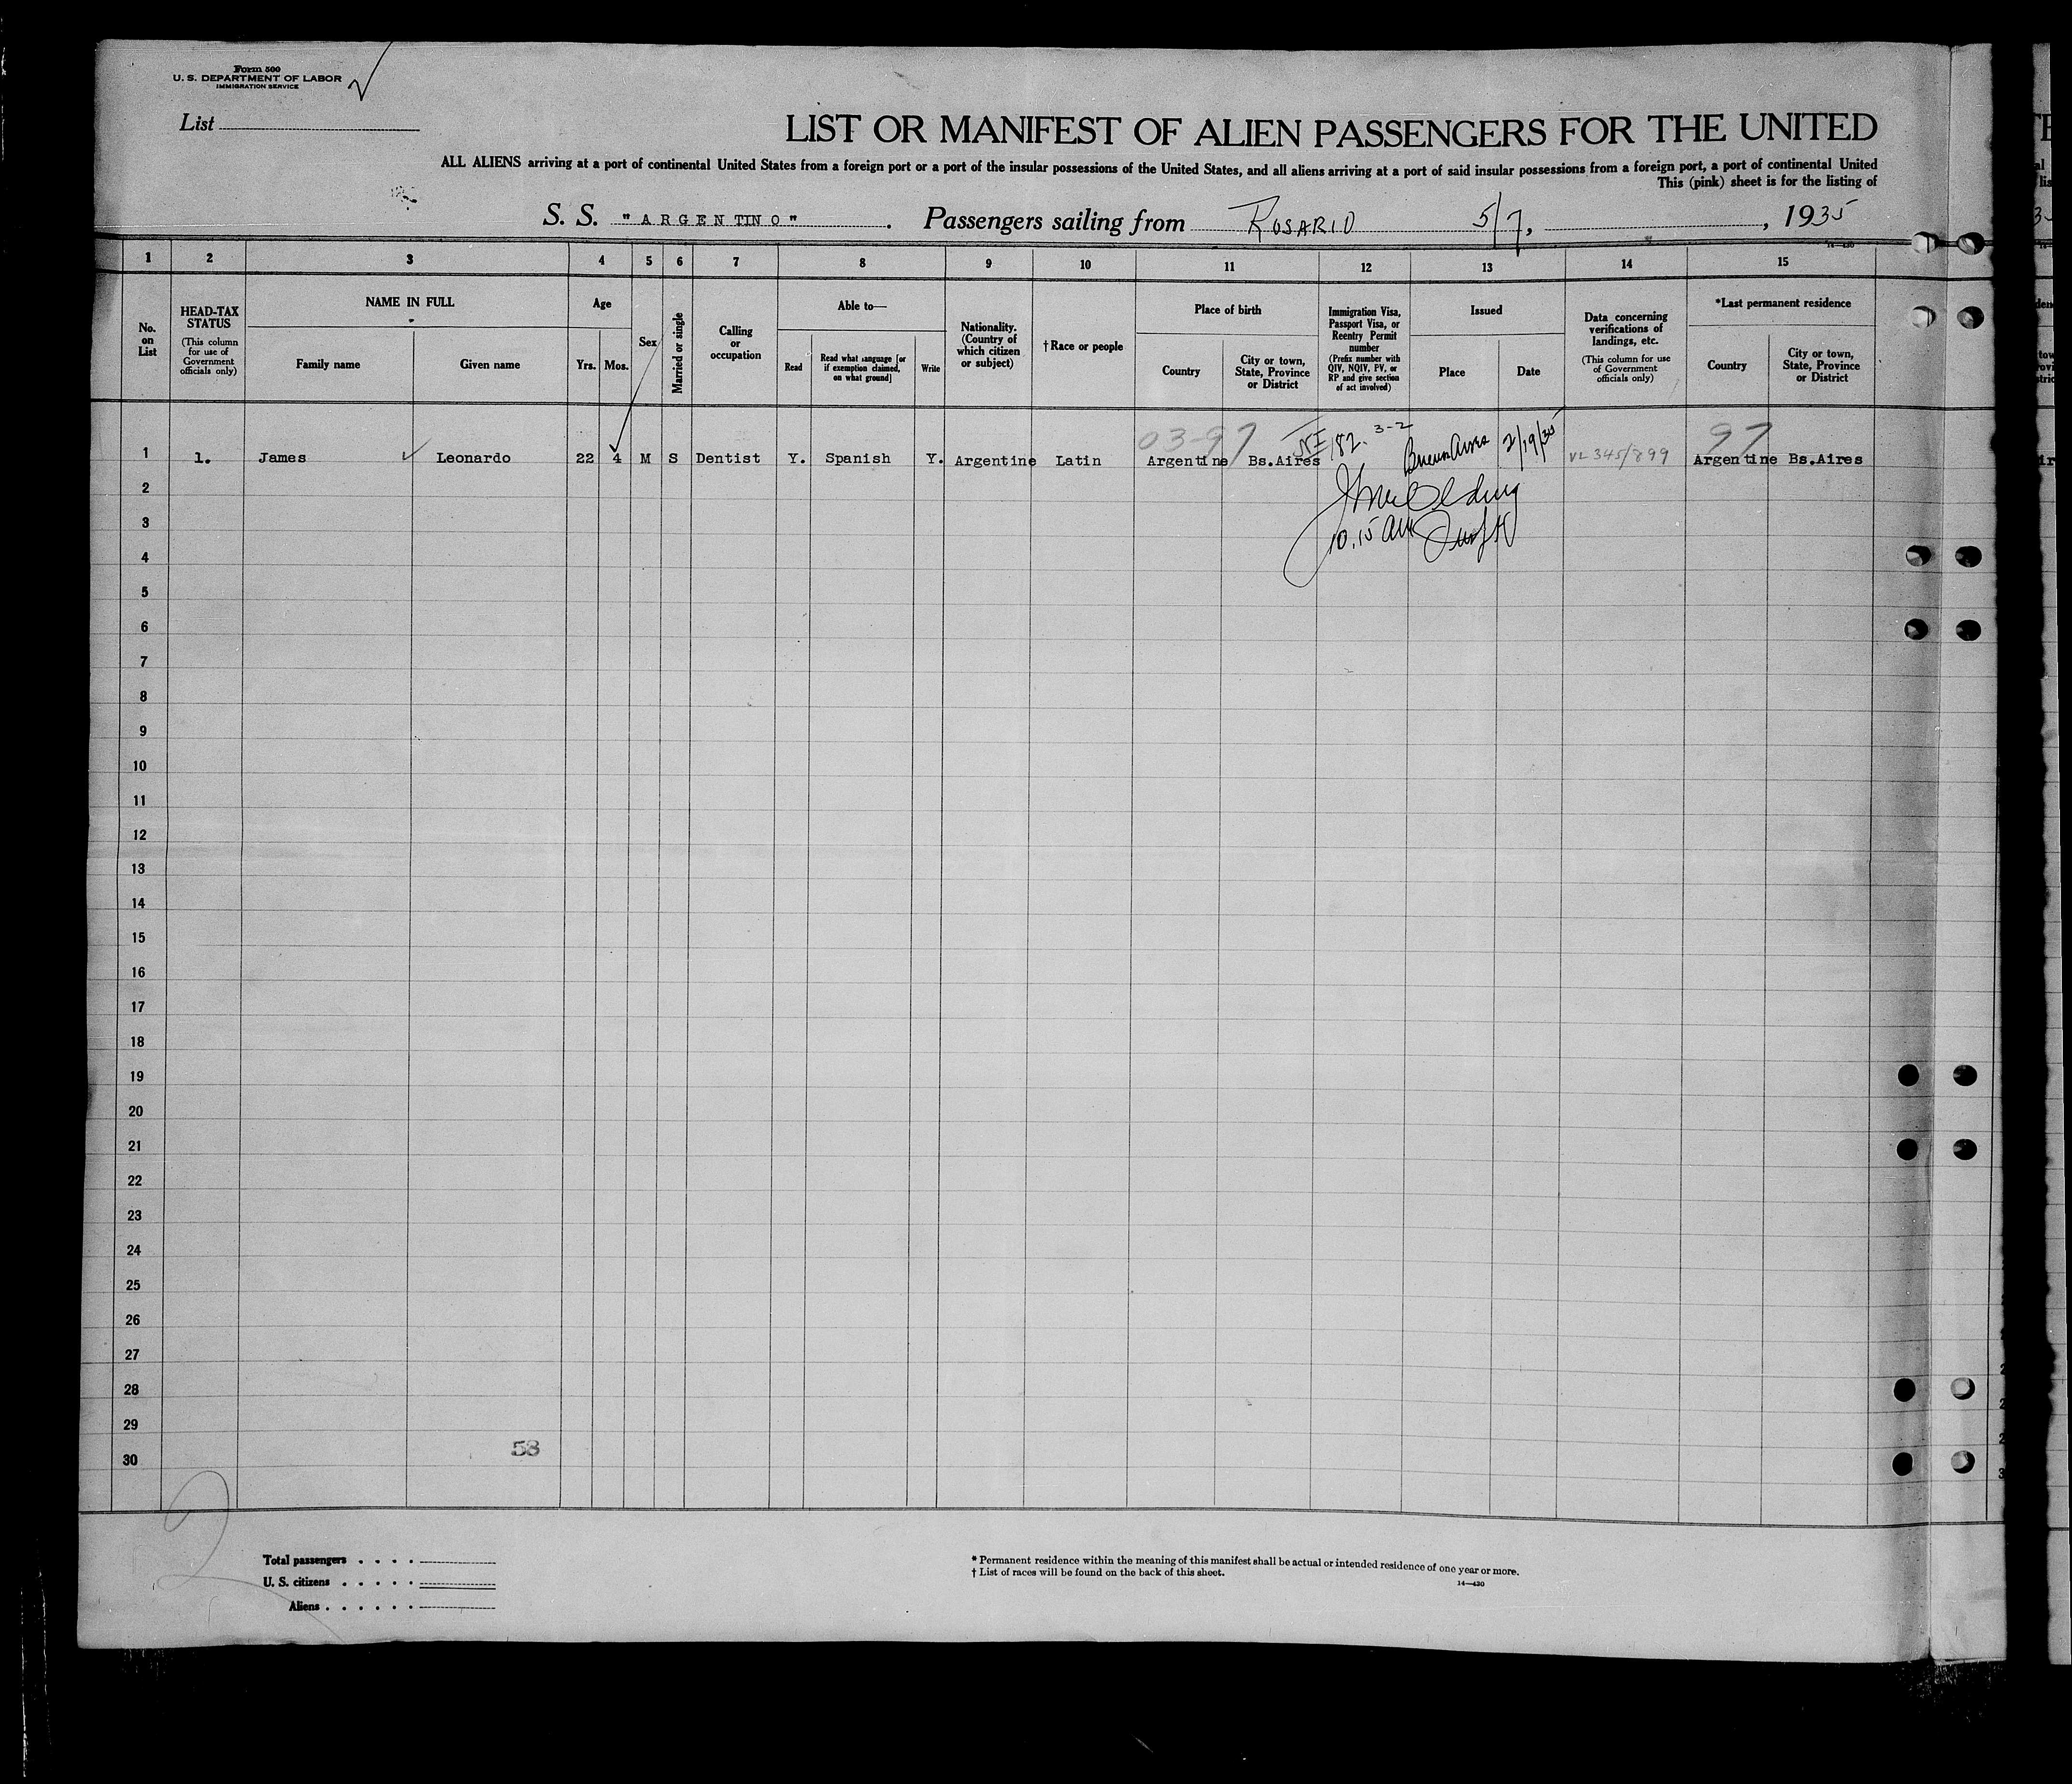 Form 500
U. S. DEPARTMENT OF LABOR
IMMIGRATION SERVICE
List
LIST OR MANIFEST OF ALIEN PASSENGERS FOR THE UNITED
ALL ALIENS arriving at a port of continental United States from a foreign port or a port of the insular possessions of the United States, and all aliens arriving at a port of said insular possessions from a foreign port, a port of continental United
This (pink) sheet is for the listing of
S. S. "ARGENTINO". Passengers sailing from ROSARIO 5/7, , 1935
1 2 3 4 5 6 7 8 9 10 11 12 13 14 15
No. on List
HEAD-TAX STATUS
(This column for use of Government officials only)
NAME IN FULL
Family name
Given name
Age
Yrs.
Mos.
Sex
Married or single
Calling or occupation
Able to—
Read
Read what language [or if exemption claimed, on what ground]
Write
Nationality. (Country of which citizen or subject)
†Race or people
Place of birth
Country
City or town, State, Province or District
Immigration Visa, Passport Visa, or Reentry Permit number
(Prefix number with QIV, NQIV, PV, or RP and give section of act involved)
Issued
Place
Date
Data concerning verifications of landings, etc.
(This column for use of Government officials only)
*Last permanent residence
Country
City or town, State, Province or District
03-97 182. 3-2 Buenos Aires 2/19/35 97
1 1. James Leonardo 22 4 M S Dentist Y. Spanish Y. Argentine Latin Argentine Bs.Aires VL 345/899 Argentine Bs.Aires
2
3
10.15 AM
4
5
6
7
8
9
10
11
12
13
14
15
16
17
18
19
20
21
22
23
24
25
26
27
28
29
58
30
2
Total passengers . . . .
U. S. citizens . . . . .
Aliens . . . . . .
* Permanent residence within the meaning of this manifest shall be actual or intended residence of one year or more.
† List of races will be found on the back of this sheet.
14—430